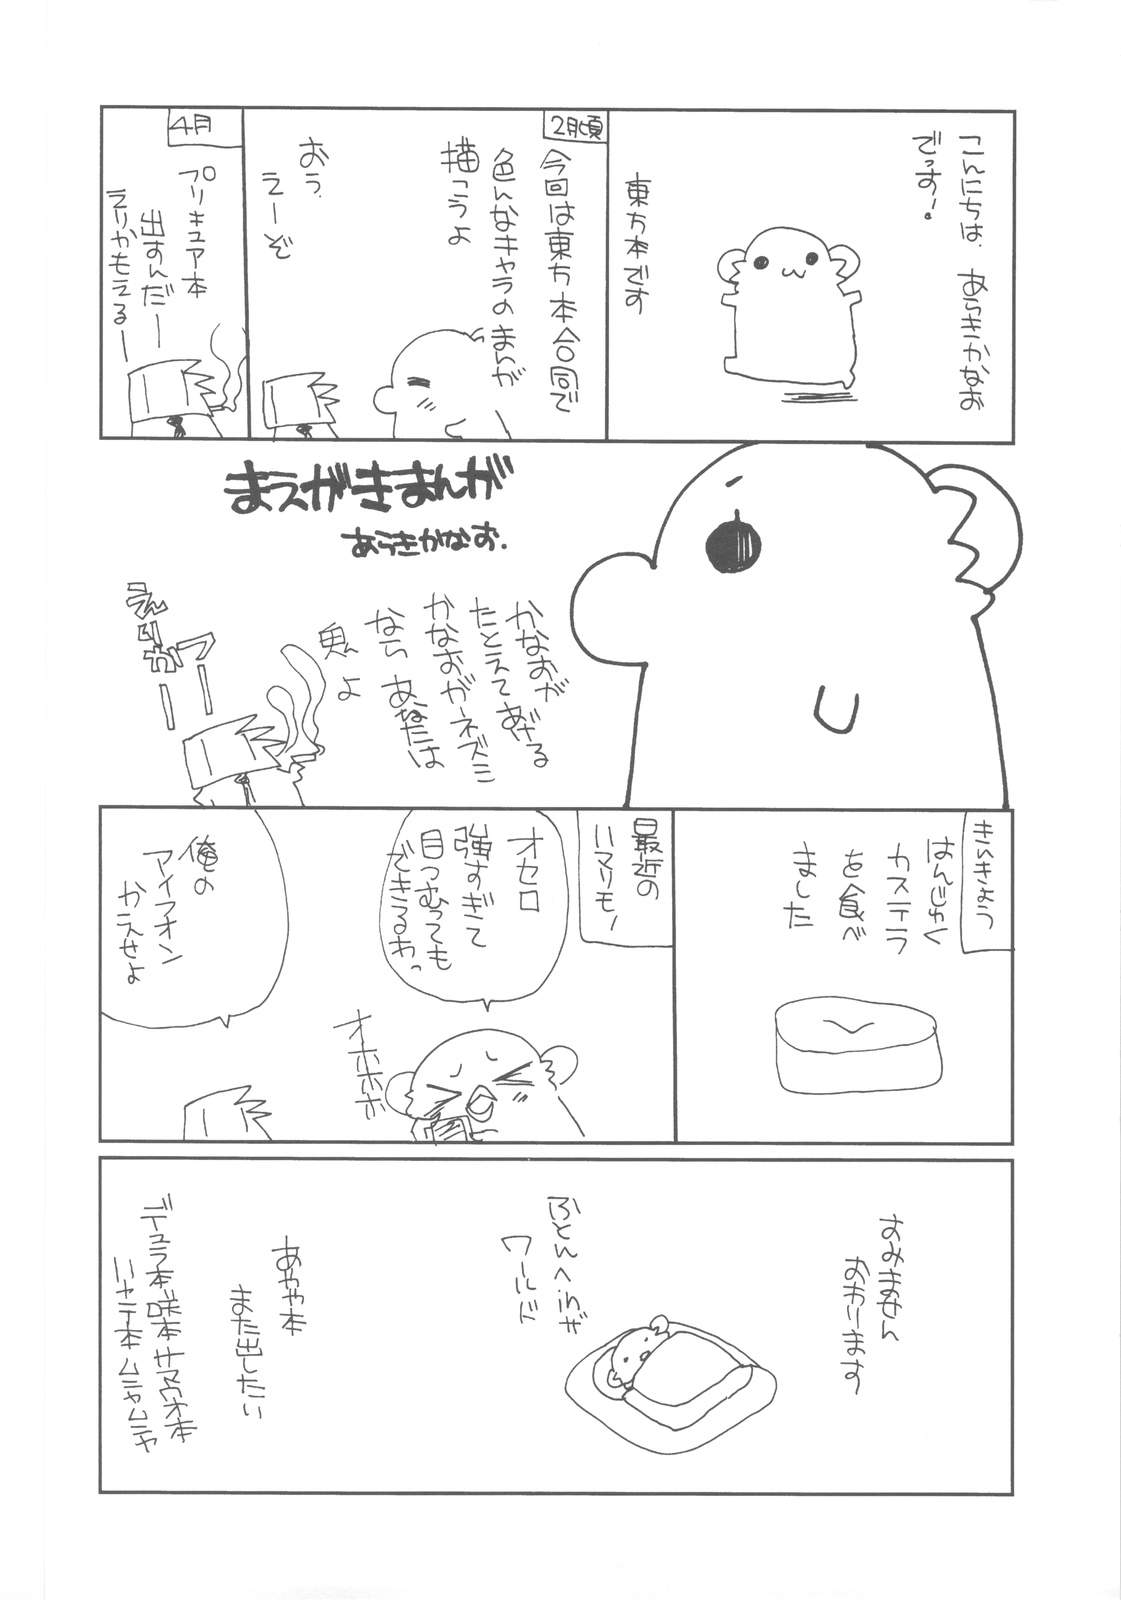 こんにちは、あらきかなお
でっす！
東方本です
2月頃
今回は東方本合同で
色んなキャラのまんが
描こうよ
おう、
えーぞ
4月
プリキュア本
出すんだー
えりかもえるー
まえがきまんが
あらきかなお.
かなおが
たとえてあげる
かなおがネズミ
なら あなたは
魚よ
えりかー
っー
きんきょう
はんじゅく
カステラ
を食べ
ました
最近の
ハマリモノ
オセロ
強すぎて
目つむっても
できるわっ
オホホホ
俺の
アイフォン
かえせよ
すみません
おわります
ふとんへinザ
ワールド
あやや本
また出したい
デュラ本 咲本 サマウオ本
ハヤテ本 ムニャムニャ